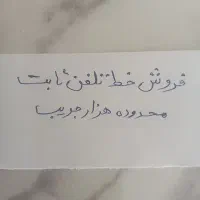 فروش خط تلفن ثابت
محدوده هزار جریب